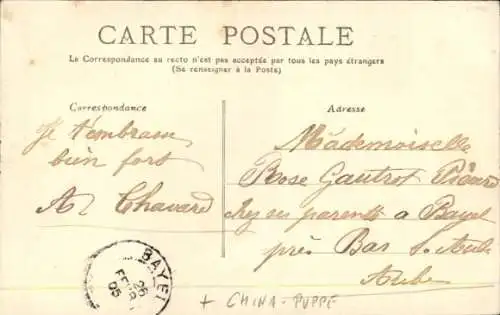 CARTE POSTALE
La Correspondance au recto n'est pas acceptée par tous les pays étrangers
(Se renseigner à la Poste)
Correspondance
Adresse
Je t'embrasse
bien fort
Chavard
Mademoiselle
Rose Gautrot
chez ses parents a Bayel
près Bar s. Aube
Aube
BAYEL
26
FEVR
05
+ CHINA-PUPPE